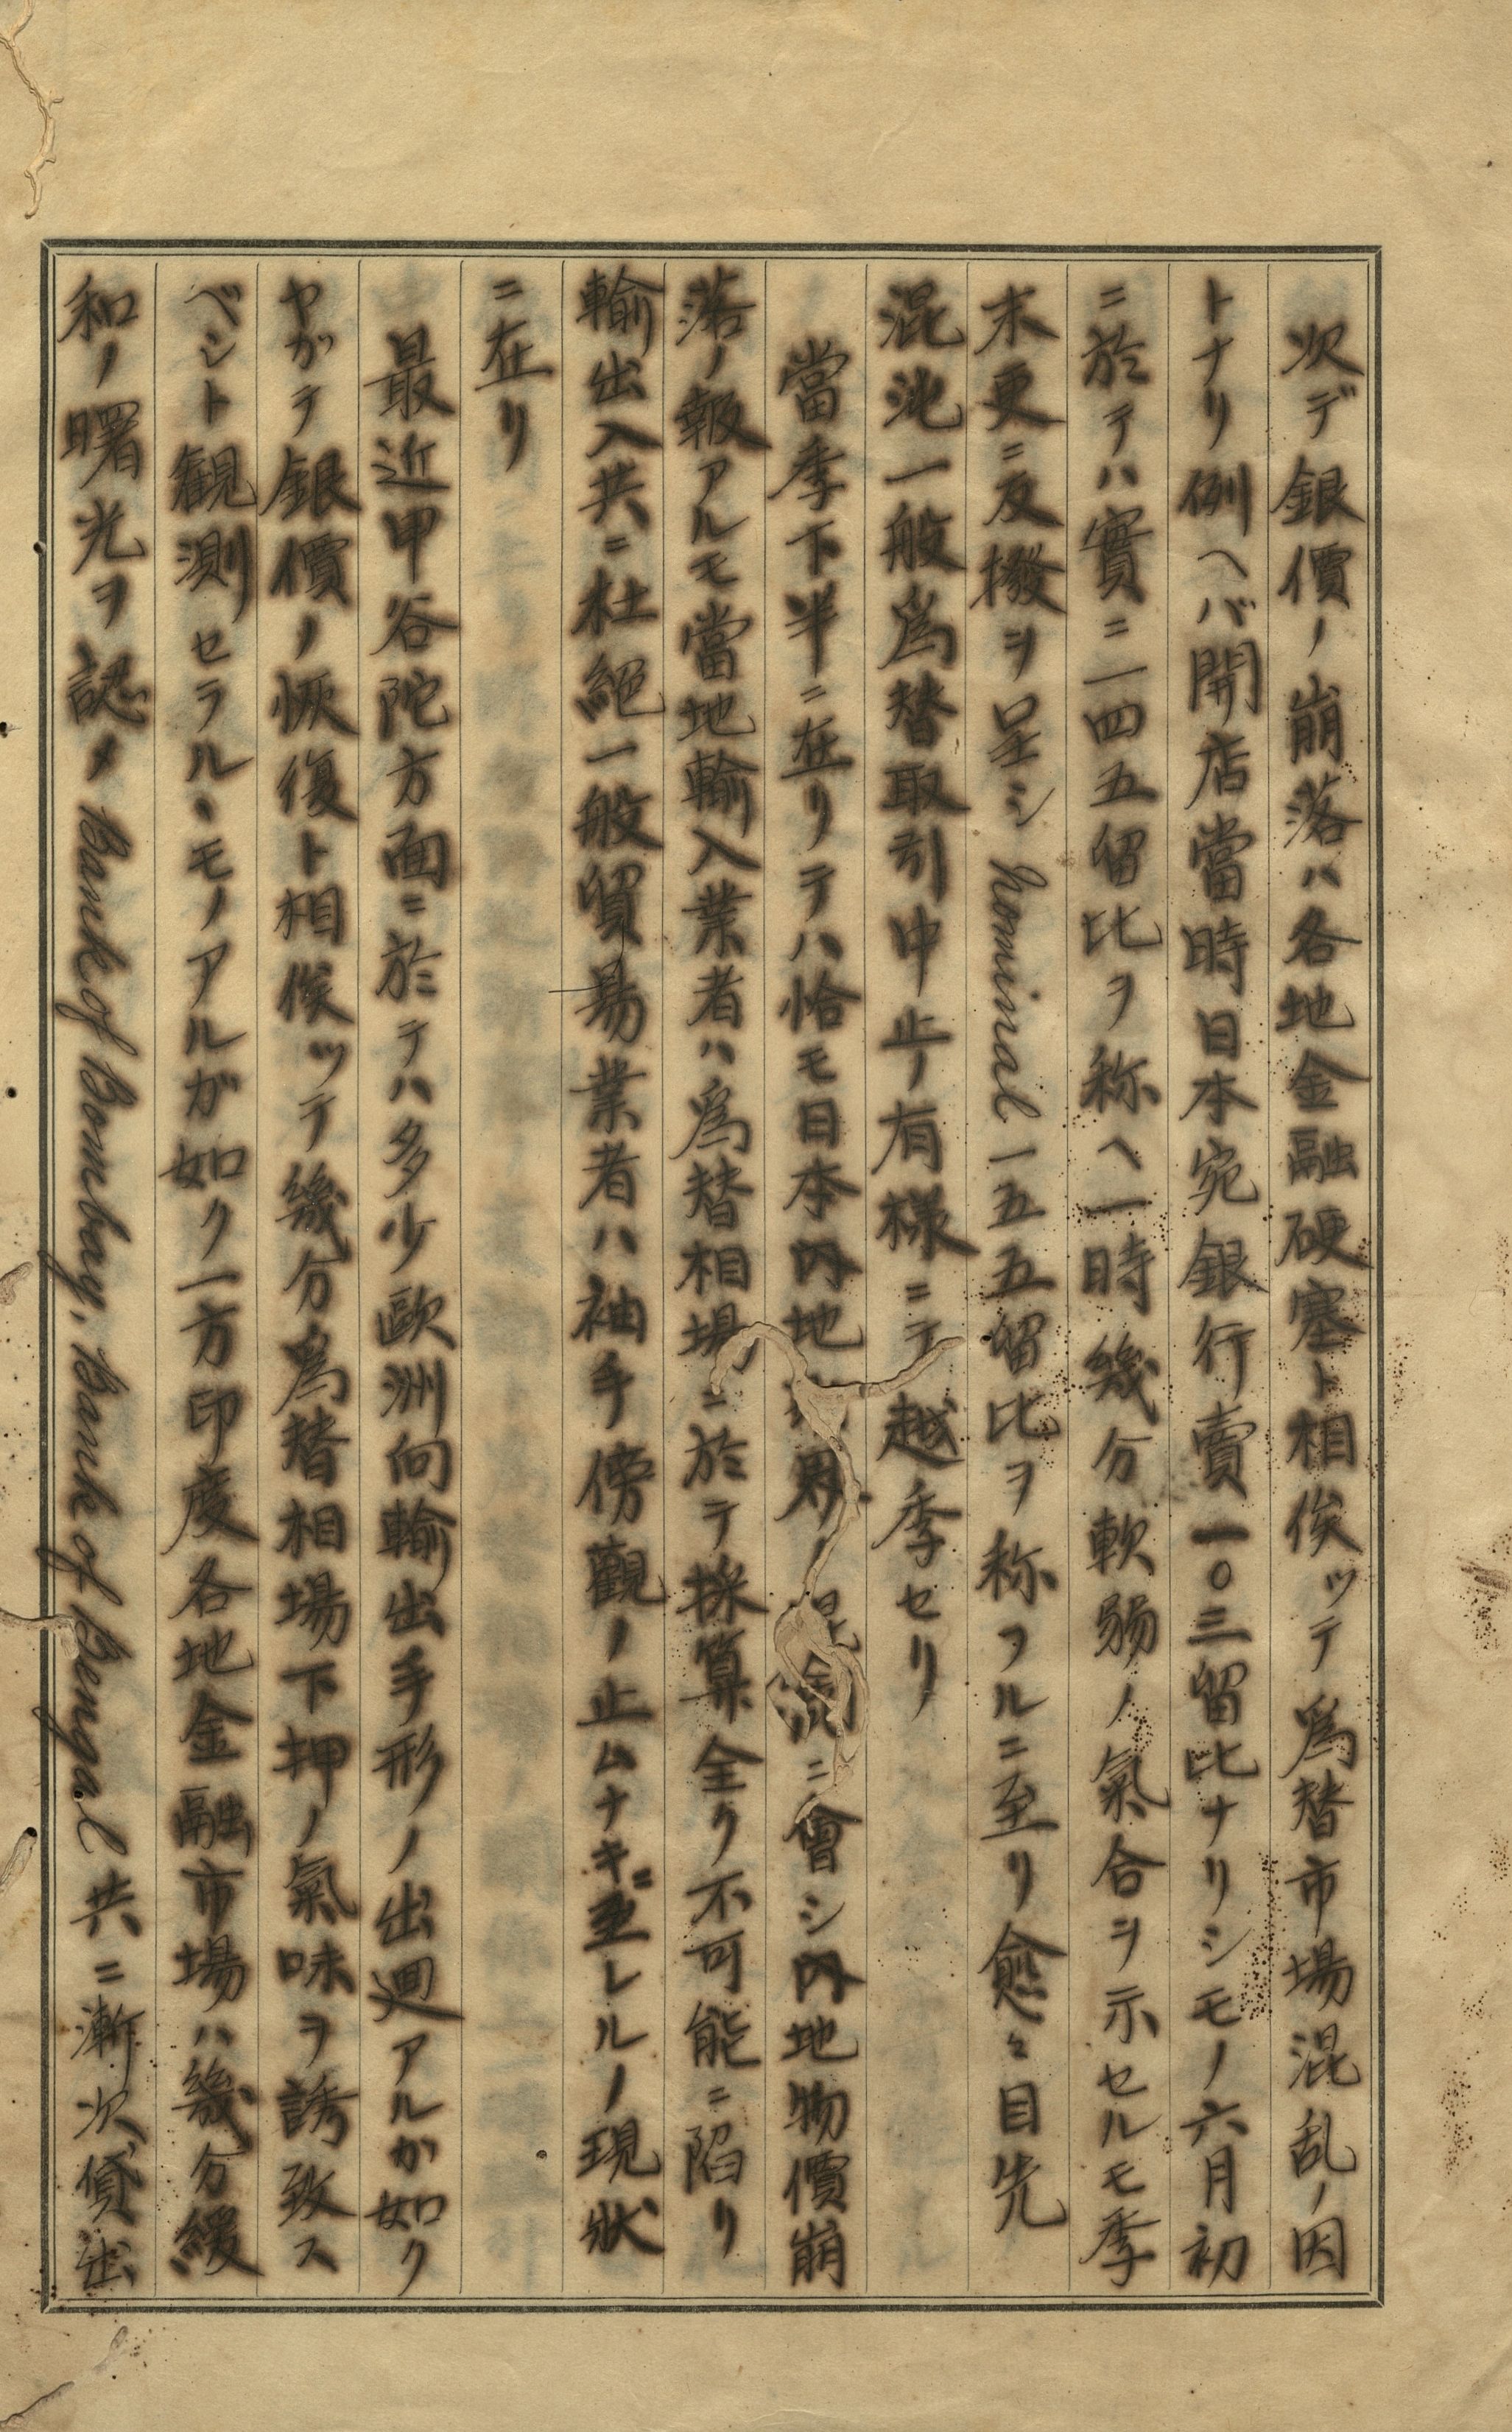 次デ銀價ノ崩落ハ各地金融硬塞ト相俟ッテ爲替市場混乱ノ因
トナリ例ヘバ開店當時日本宛銀行賣一〇三留比ナリシモノ六月初
ニ於テハ實ニ一四五留比ヲ称ヘ一時幾分軟弱ノ氣合ヲ示セルモ季
末更ニ反撥ヲ呈シnominal一五五留比ヲ称フルニ至リ愈々目先
混沌一般爲替取引中止ノ有様ニテ越季セリ
當季下半ニ在リテハ恰モ日本内地界ノ混ニ會シ内地物價崩
落ノ報アルモ當地輸入業者ハ爲替相場ニ於テ採算全ク不可能ニ陷リ
輸出入共ニ杜絕一般貿易業者ハ袖手傍觀ノ止ムナキニ至レルノ現狀
ニ在リ
最近甲谷陀方面ニ於テハ多少歐洲向輸出手形ノ出廻アルか如ク
ヤガテ銀價ノ恢復ト相俟ッテ幾分爲替相場下押ノ氣味ヲ誘致ス
ベシト観測セラルヽモノアルガ如ク一方印度各地金融市場ハ幾分緩
和ノ曙光ヲ認メBank of Bombay, Bank of Bengal共ニ漸次貸出